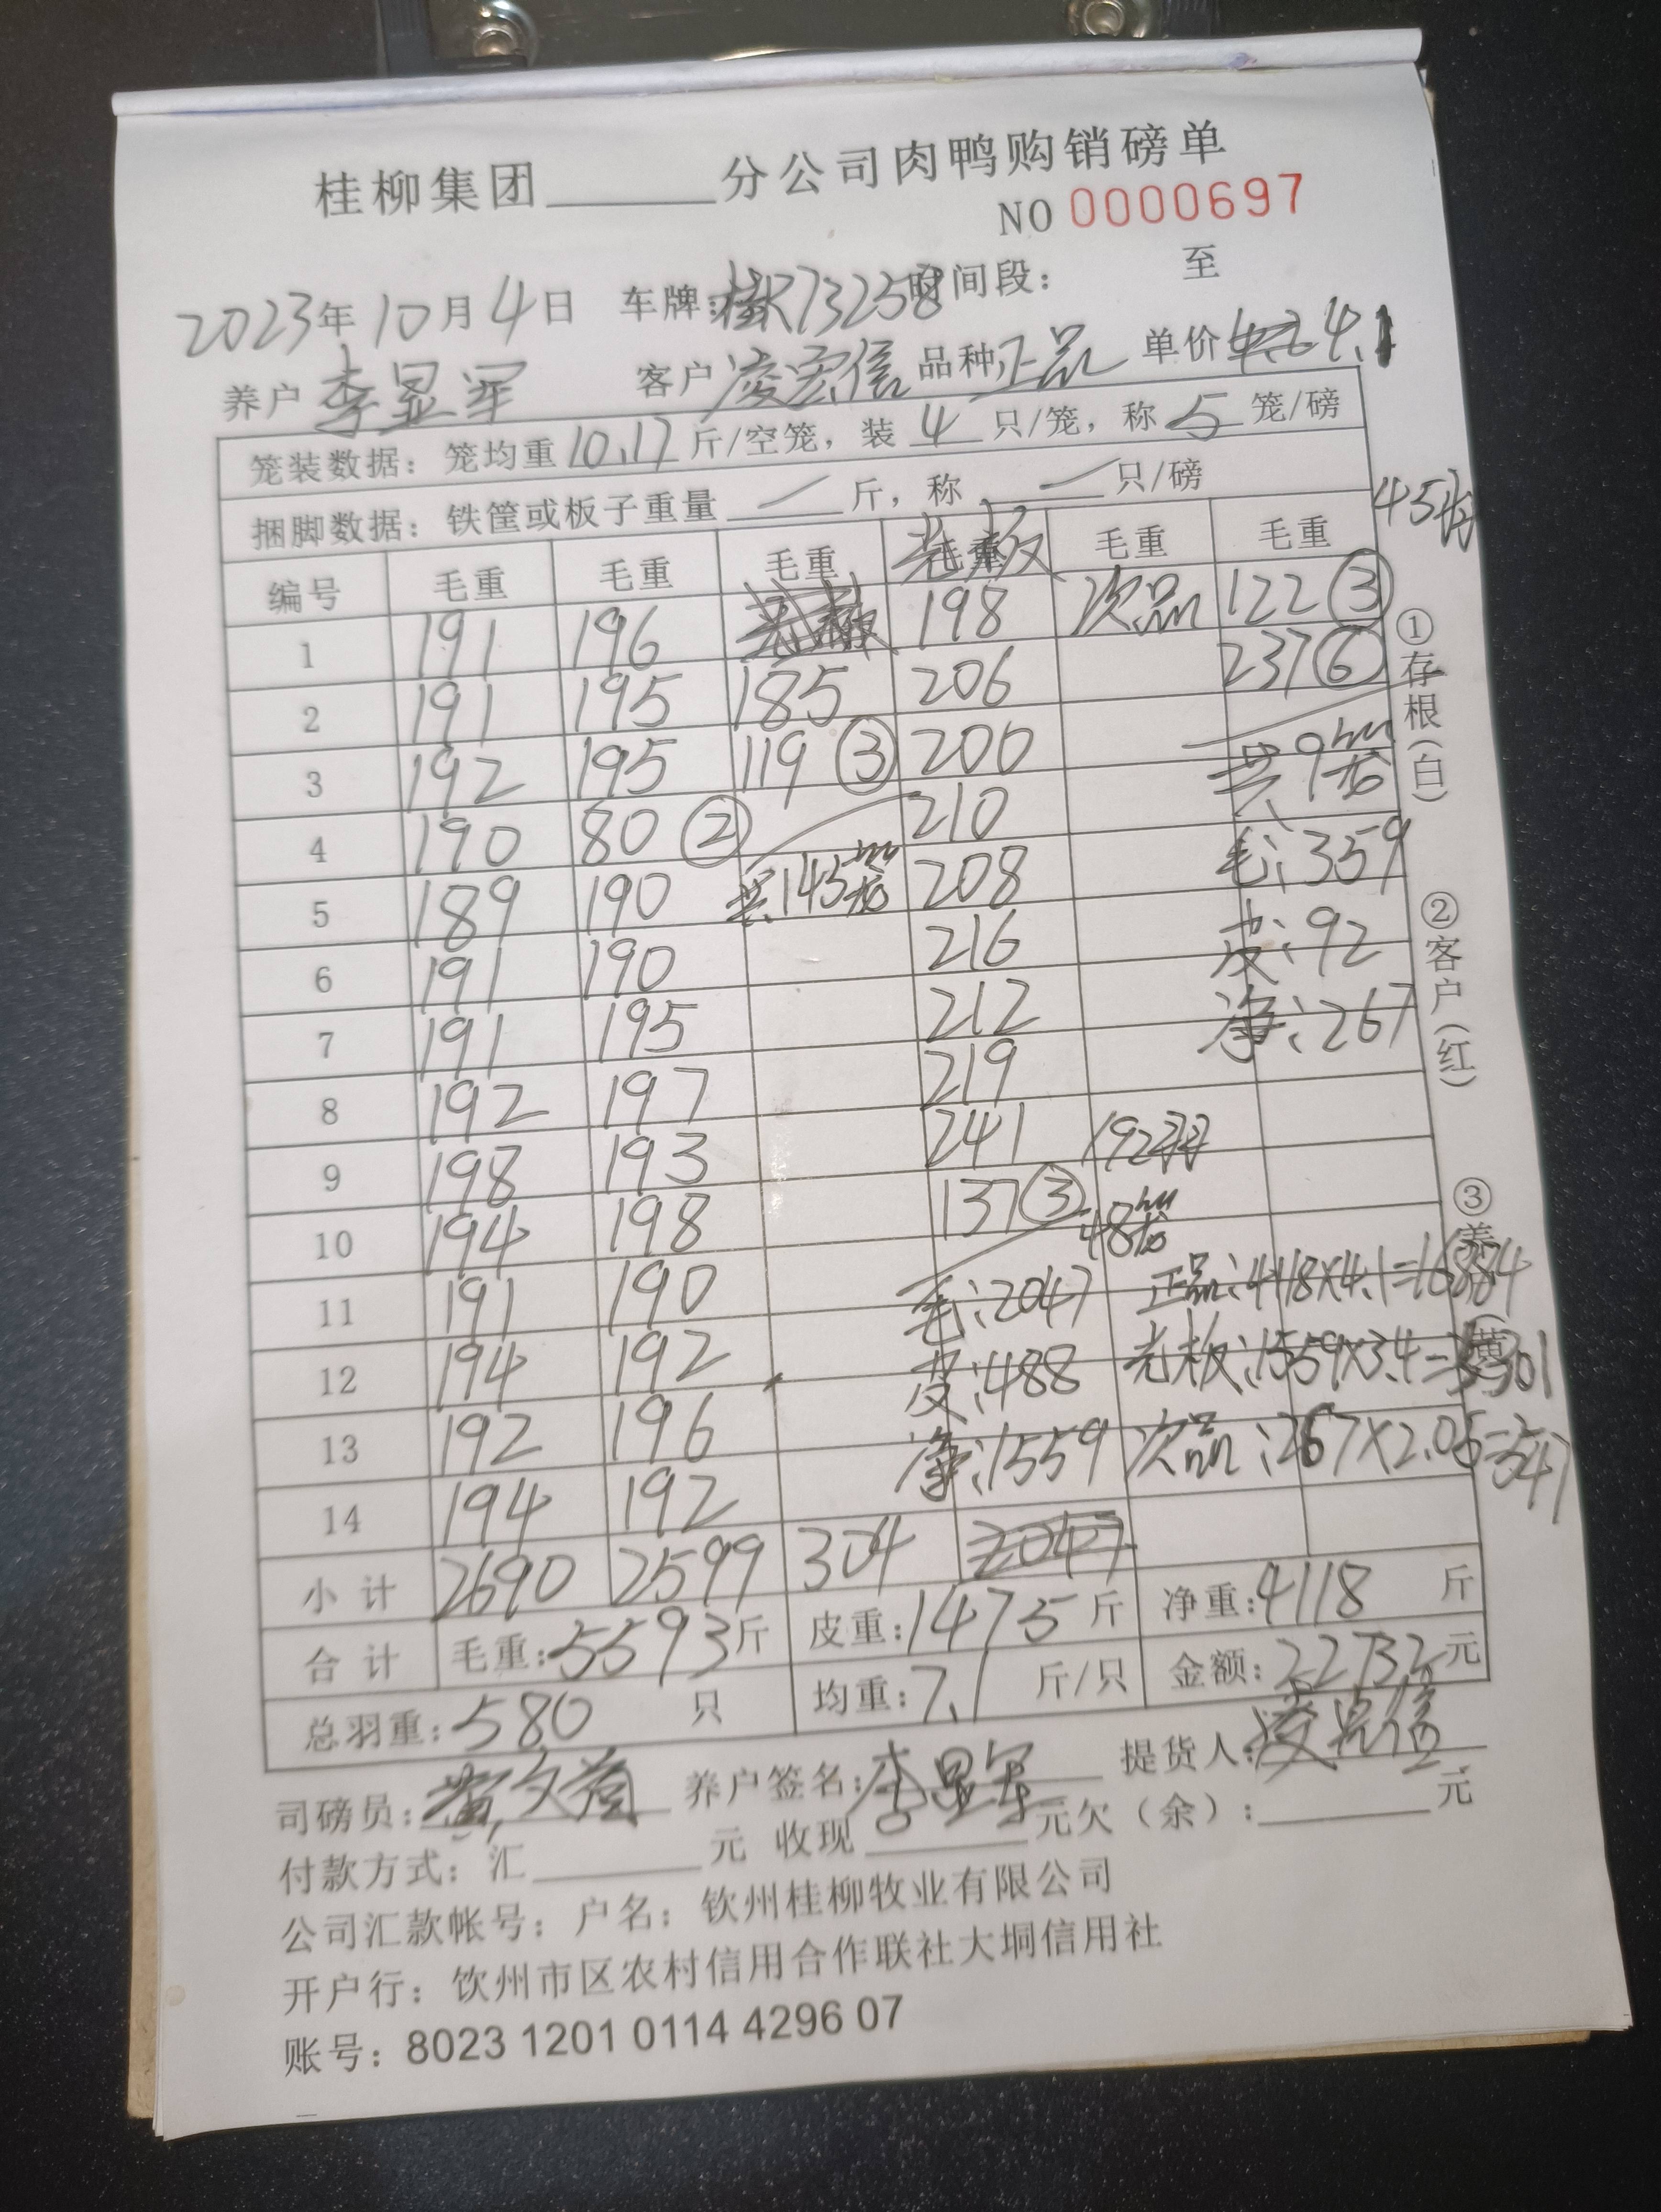 桂柳集团______分公司肉鸭购销磅单
NO 0000697
2023年10月4日 车牌:桂K73258 时间段: 至
养户 李显军 客户 凌宏信 品种 正品 单价 4.2 4.1
笼装数据: 笼均重 10.17 斤/空笼, 装 4 只/笼, 称 5 笼/磅
捆脚数据: 铁筐或板子重量 / 斤, 称 / 只/磅
45磅
编号 毛重 毛重 毛重 毛重 光板 毛重 毛重
1 191 196 光板 198 次品 122 ③
2 191 195 185 206 237 ⑥
3 192 195 119 ③ 200 共9笼
4 190 80 ② 210 毛:359
5 189 190 共145笼 208 皮:92
6 191 190 216 净:267
7 191 195 212
8 192 197 219
9 198 193 241 192羽
10 194 198 137 ③ 48笼
11 191 190 毛:2047 正品:4118×4.1=16884
12 194 192 皮:488 光板:1559×3.4=5301
13 192 196 净:1559 次品:267×2.05=547
14 194 192
小计 2690 2599 304 2047
合计 毛重:5593斤 皮重:1475斤 净重:4118 斤
总羽重:580 只 均重:7.1 斤/只 金额:22732元
司磅员: 养户签名:李显军 提货人:凌宏信
付款方式: 汇______元 收现______元欠(余):______元
公司汇款帐号: 户名: 钦州桂柳牧业有限公司
开户行: 钦州市区农村信用合作联社大垌信用社
账号: 8023 1201 0114 4296 07
①存根(白)
②客户(红)
③养 (黄